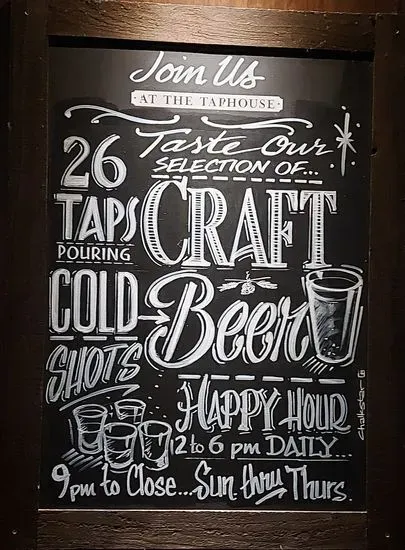 Join Us
AT THE TAPHOUSE
Taste Our
SELECTION OF...
26
TAPS
POURING
CRAFT
COLD
Beer
SHOTS
HAPPY HOUR
12 to 6 pm DAILY...
9pm to Close... Sun. thru Thurs.
Chalkstar